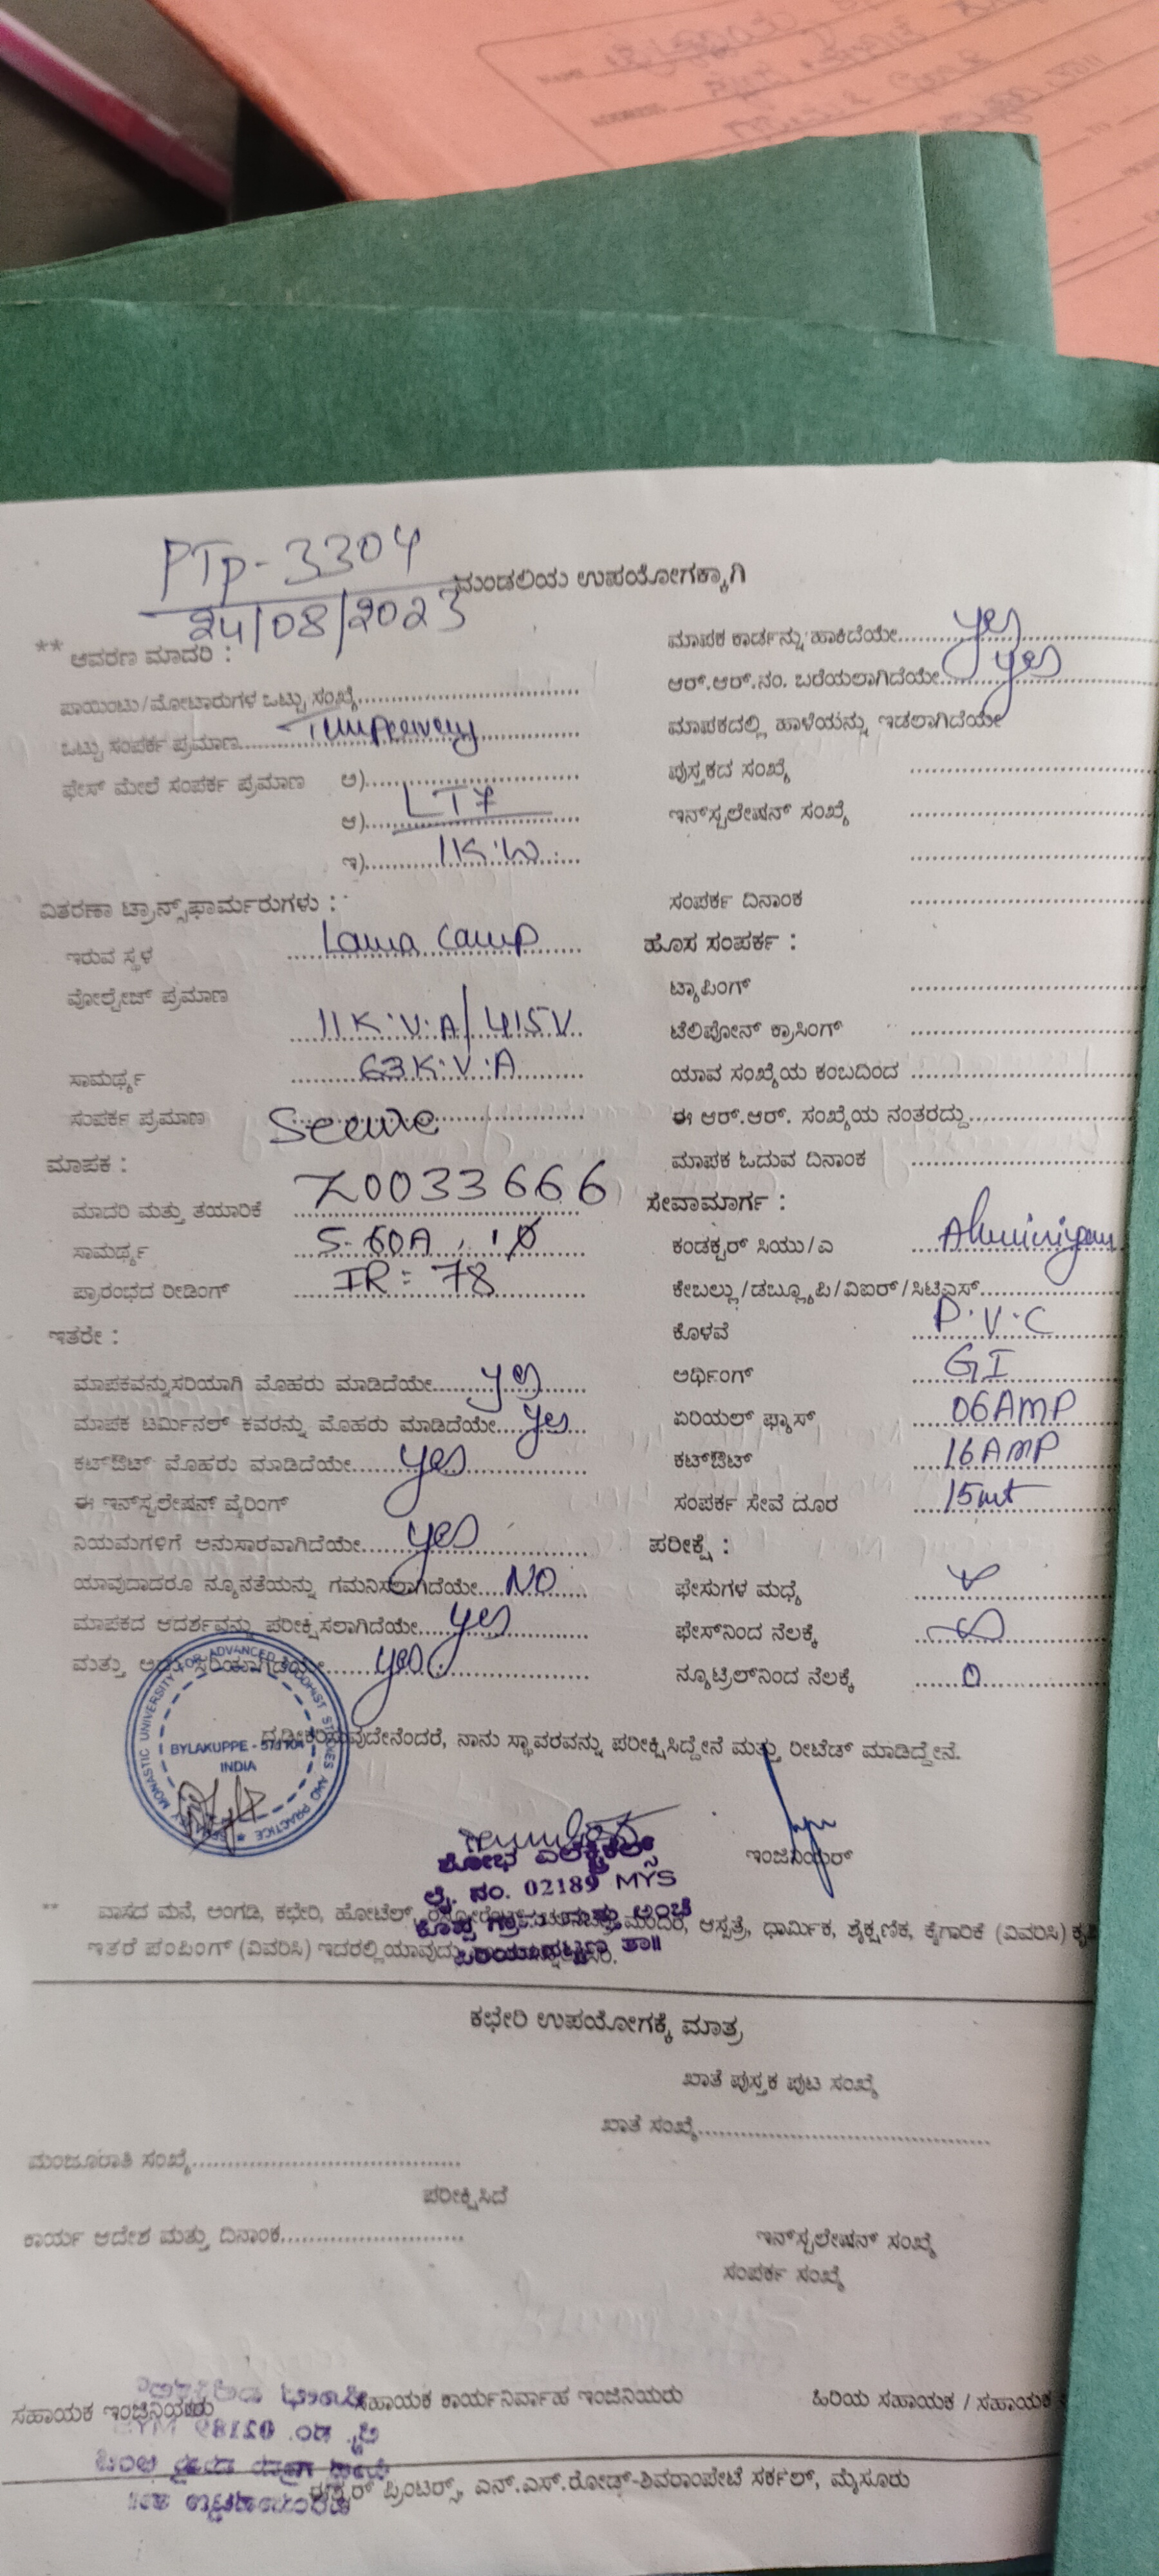 PTP-3304
24/08/2023
ಮಂಡಲಿಯ ಉಪಯೋಗಕ್ಕಾಗಿ
** ಆವರಣ ಮಾದರಿ :
ಪಾಯಿಂಟು/ಮೋಟಾರುಗಳ ಒಟ್ಟು ಸಂಖ್ಯೆ
ಒಟ್ಟು ಸಂಪರ್ಕ ಪ್ರಮಾಣ
ಫೇಸ್ ಮೇಲೆ ಸಂಪರ್ಕ ಪ್ರಮಾಣ ಅ)
ಆ) LT7
ಇ) 1K.W
ವಿತರಣಾ ಟ್ರಾನ್ಸ್‌ಫಾರ್ಮರುಗಳು :
ಇರುವ ಸ್ಥಳ Lama Camp
ವೋಲ್ಟೇಜ್ ಪ್ರಮಾಣ 11K.V.A/415V
ಸಾಮರ್ಥ್ಯ 63K.V.A
ಸಂಪರ್ಕ ಪ್ರಮಾಣ Secure
ಮಾಪಕ :
ಮಾದರಿ ಮತ್ತು ತಯಾರಿಕೆ Z0033666
ಸಾಮರ್ಥ್ಯ 5-60A, 1Ø
ಪ್ರಾರಂಭದ ರೀಡಿಂಗ್ IR = 78
ಇತರೇ :
ಮಾಪಕವನ್ನು ಸರಿಯಾಗಿ ಮೊಹರು ಮಾಡಿದೆಯೇ yes
ಮಾಪಕ ಟರ್ಮಿನಲ್ ಕವರನ್ನು ಮೊಹರು ಮಾಡಿದೆಯೇ yes
ಕಟ್‌ಔಟ್ ಮೊಹರು ಮಾಡಿದೆಯೇ yes
ಈ ಇನ್‌ಸ್ಟಲೇಷನ್ ವೈರಿಂಗ್
ನಿಯಮಗಳಿಗೆ ಅನುಸಾರವಾಗಿದೆಯೇ yes
ಯಾವುದಾದರೂ ನ್ಯೂನತೆಯನ್ನು ಗಮನಿಸಲಾಗಿದೆಯೇ NO
ಮಾಪಕದ ಆದರ್ಶವನ್ನು ಪರೀಕ್ಷಿಸಲಾಗಿದೆಯೇ yes
ಮತ್ತು ಅದು ಸರಿಯಾಗಿದೆಯೇ yes
ಮಾಪಕ ಕಾರ್ಡನ್ನು ಹಾಕಿದೆಯೇ yes
ಆರ್.ಆರ್.ನಂ. ಬರೆಯಲಾಗಿದೆಯೇ yes
ಮಾಪಕದಲ್ಲಿ ಹಾಳೆಯನ್ನು ಇಡಲಾಗಿದೆಯೇ
ಪುಸ್ತಕದ ಸಂಖ್ಯೆ
ಇನ್‌ಸ್ಟಲೇಷನ್ ಸಂಖ್ಯೆ
ಸಂಪರ್ಕ ದಿನಾಂಕ
ಹೊಸ ಸಂಪರ್ಕ :
ಟ್ಯಾಪಿಂಗ್
ಟೆಲಿಪೋನ್ ಕ್ರಾಸಿಂಗ್
ಯಾವ ಸಂಖ್ಯೆಯ ಕಂಬದಿಂದ
ಈ ಆರ್.ಆರ್. ಸಂಖ್ಯೆಯ ನಂತರದ್ದು
ಮಾಪಕ ಓದುವ ದಿನಾಂಕ
ಸೇವಾಮಾರ್ಗ :
ಕಂಡಕ್ಟರ್ ಸಿಯು/ಎ Aluminiyam
ಕೇಬಲ್ಲು/ಡಬ್ಲ್ಯೂಪಿ/ವಿಐರ್/ಸಿಟಿಎಸ್
ಕೊಳವೆ P.V.C
ಅರ್ಥಿಂಗ್ GI
ಏರಿಯಲ್ ಫ್ಯೂಸ್ 06AMP
ಕಟ್‌ಔಟ್ 16AMP
ಸಂಪರ್ಕ ಸೇವೆ ದೂರ 15mt
ಪರೀಕ್ಷೆ :
ಫೇಸುಗಳ ಮಧ್ಯೆ
ಫೇಸ್‌ನಿಂದ ನೆಲಕ್ಕೆ
ನ್ಯೂಟ್ರೆಲ್‌ನಿಂದ ನೆಲಕ್ಕೆ 0
ದೃಢೀಕರಿಸುವುದೇನೆಂದರೆ, ನಾನು ಸ್ಥಾವರವನ್ನು ಪರೀಕ್ಷಿಸಿದ್ದೇನೆ ಮತ್ತು ರೀಟೆಡ್ ಮಾಡಿದ್ದೇನೆ.
MONASTIC UNIVERSITY FOR ADVANCED BUDDHIST STUDIES AND PRACTICE
BYLAKUPPE - 571104
INDIA
ಇಂಜಿನಿಯರ್
ಶೋಭ ಎಲೆಕ್ಟ್ರಿಕಲ್ಸ್
ಲೈ. ನಂ. 02189 MYS
ಕೊಪ್ಪ ಗ್ರಾಮ ಮತ್ತು ಅಂಚೆ
ಪಿರಿಯಾಪಟ್ಟಣ ತಾ||
** ವಾಸದ ಮನೆ, ಅಂಗಡಿ, ಕಛೇರಿ, ಹೋಟೆಲ್, ಮಂದಿರ, ಆಸ್ಪತ್ರೆ, ಧಾರ್ಮಿಕ, ಶೈಕ್ಷಣಿಕ, ಕೈಗಾರಿಕೆ (ವಿವರಿಸಿ)
ಇತರೆ ಪಂಪಿಂಗ್ (ವಿವರಿಸಿ) ಇದರಲ್ಲಿ ಯಾವುದು
ಕಛೇರಿ ಉಪಯೋಗಕ್ಕೆ ಮಾತ್ರ
ಖಾತೆ ಪುಸ್ತಕ ಪುಟ ಸಂಖ್ಯೆ
ಖಾತೆ ಸಂಖ್ಯೆ
ಮಂಜೂರಾತಿ ಸಂಖ್ಯೆ
ಪರೀಕ್ಷಿಸಿದೆ
ಕಾರ್ಯ ಆದೇಶ ಮತ್ತು ದಿನಾಂಕ
ಇನ್‌ಸ್ಟಲೇಷನ್ ಸಂಖ್ಯೆ
ಸಂಪರ್ಕ ಸಂಖ್ಯೆ
ಸಹಾಯಕ ಇಂಜಿನಿಯರು ಸಹಾಯಕ ಕಾರ್ಯನಿರ್ವಾಹ ಇಂಜಿನಿಯರು ಹಿರಿಯ ಸಹಾಯಕ / ಸಹಾಯಕ
ಪ್ರಿಂಟರ್ಸ್, ಎನ್.ಎಸ್.ರೋಡ್-ಶಿವರಾಂಪೇಟೆ ಸರ್ಕಲ್, ಮೈಸೂರು